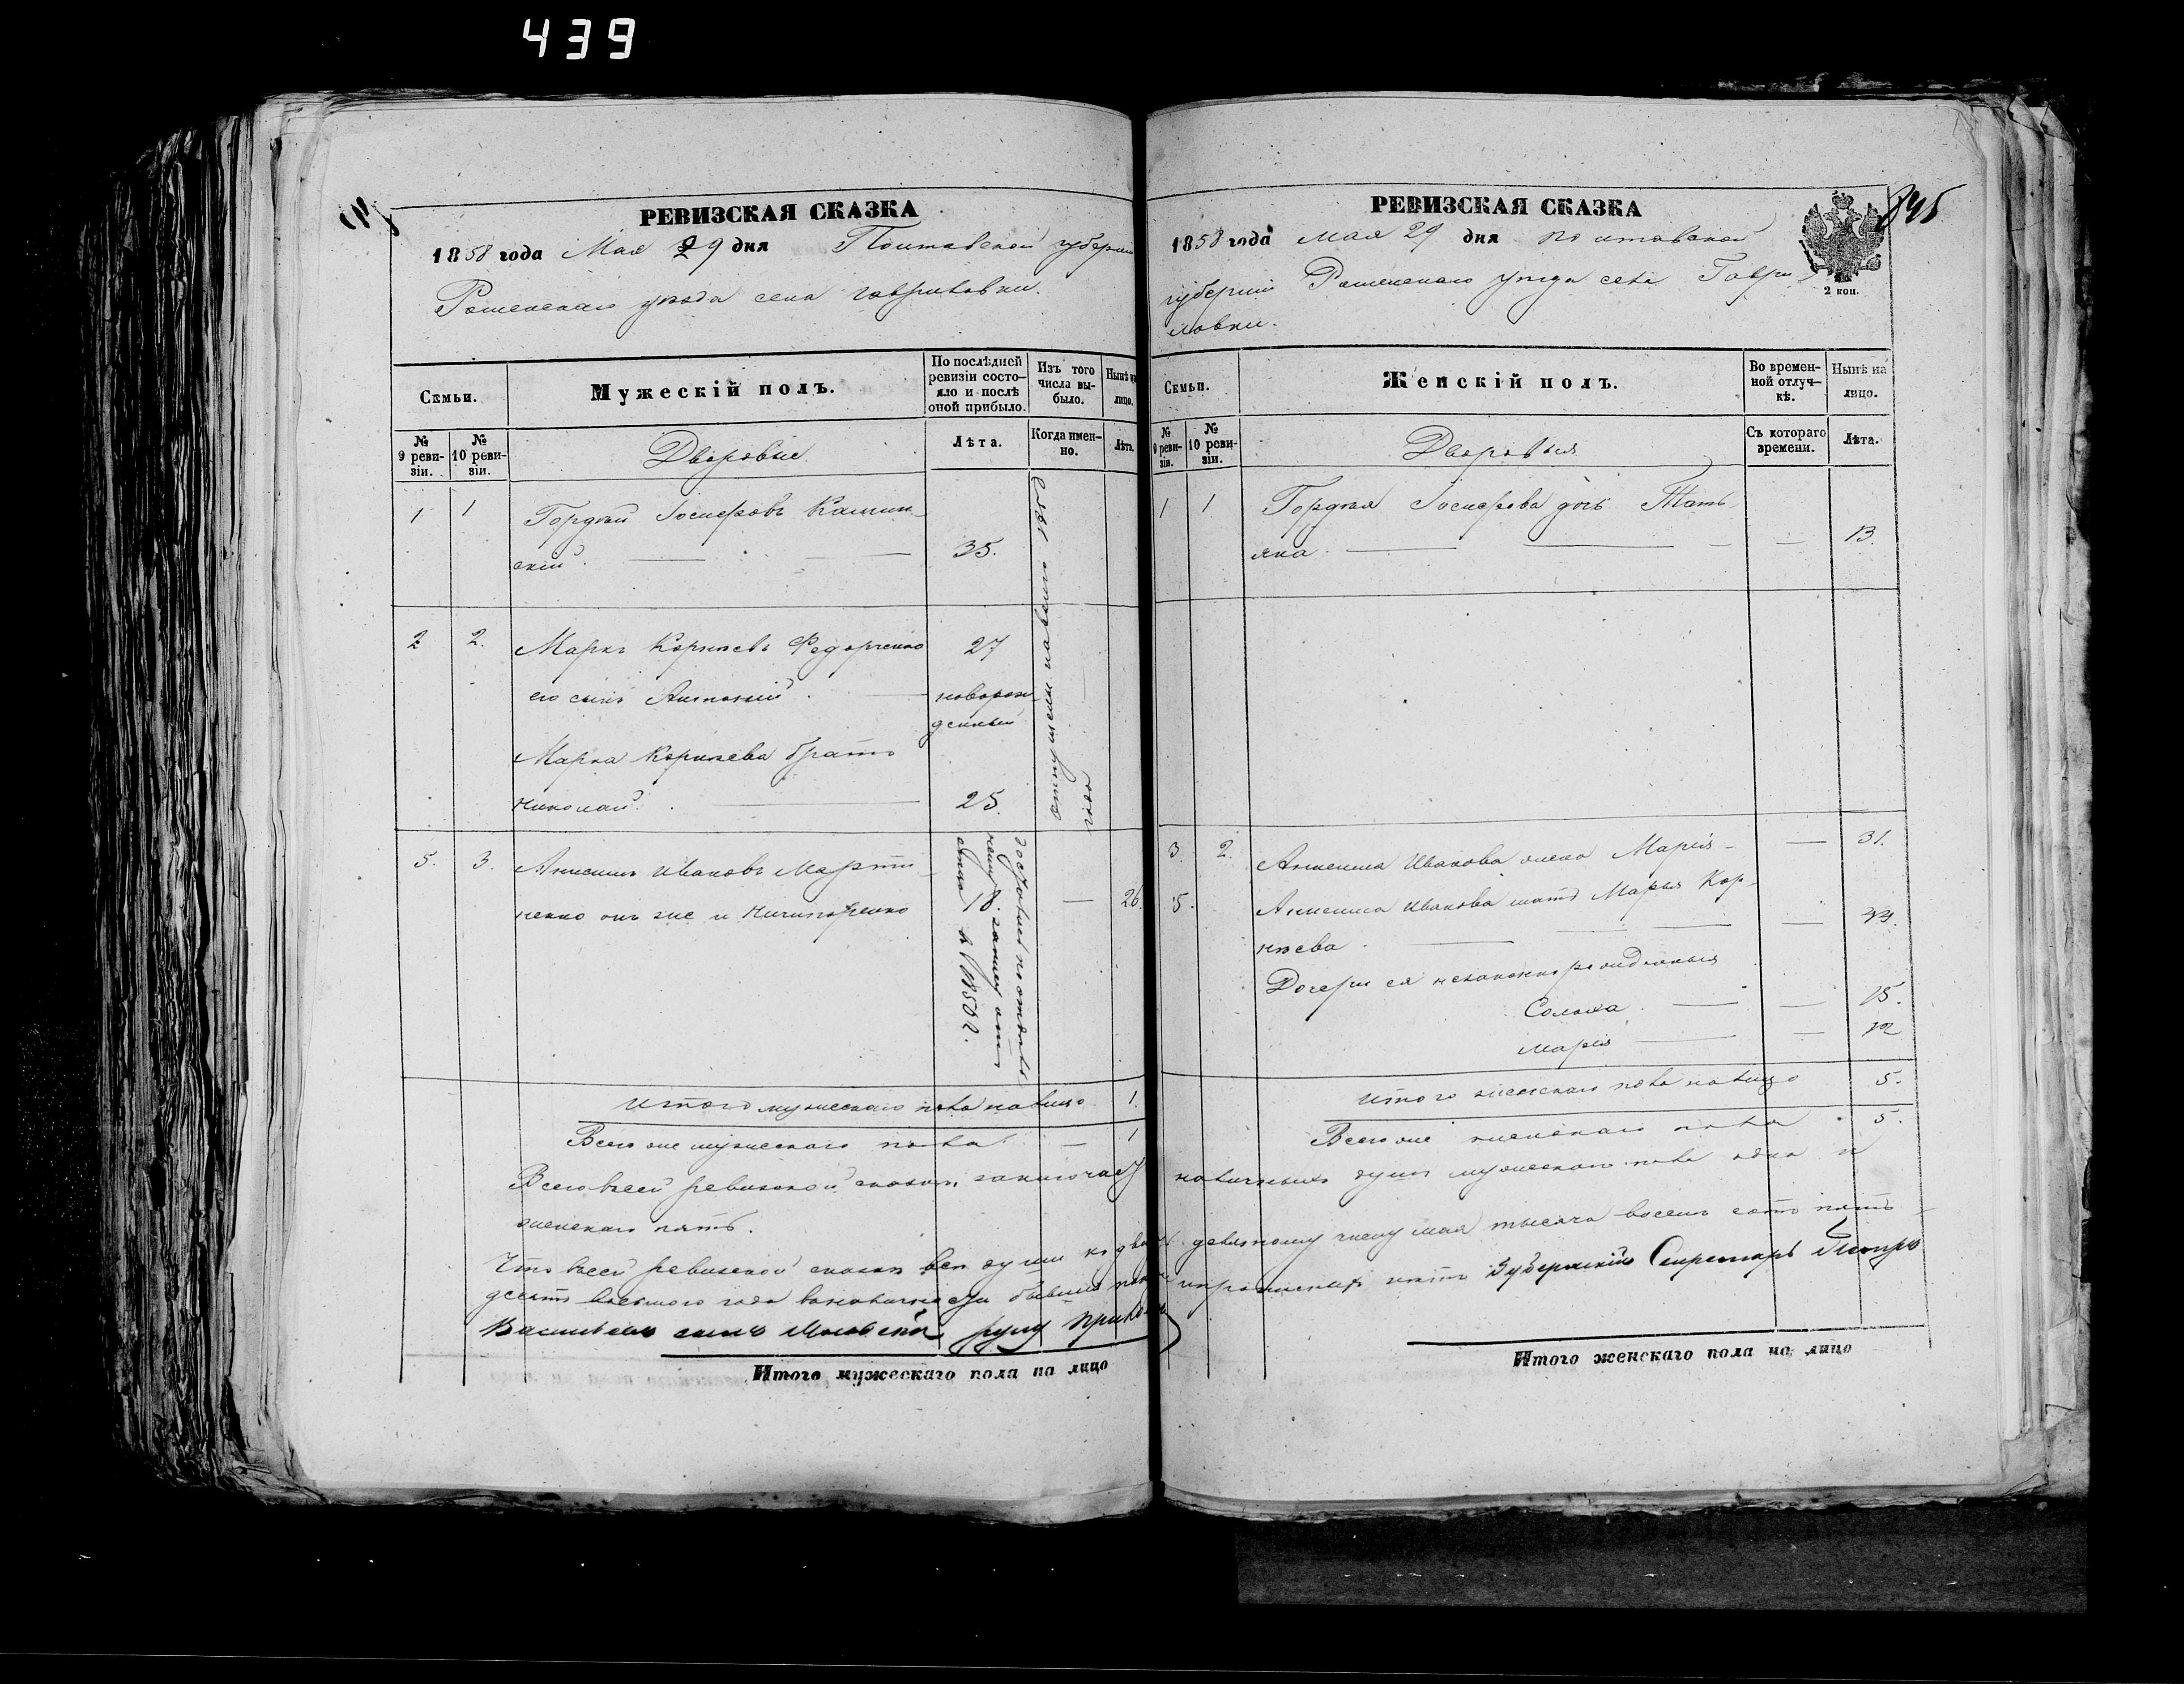 439
РЕВИЗСКАЯ СКАЗКА
1858 года Мая 29 дня Полтавской губернии
Роменскаго уезда села Гавриловки.
Семьи.
Мужескій полъ.
По послѣдней ревизіи состо-
яло и послѣ оной прибыло.
Изъ того числа вы-
было.
Нынѣ на лицо.
№ 9 реви-
зіи.
№ 10 реви-
зіи.
Дворовые
Лѣта.
Когда имен-
но.
Лѣта.
1 1 Гордѣй Іосифовъ Камин-
скій. 35.
2 2. Марко Корнѣевъ Федорченко 27
его сынъ Антоній новорож
денный
Марка Корнѣева братъ
Николай. 25.
отпущены на волю 1858
года
5. 3. Анисимъ Ивановъ Марти-
ненко онъ же и Ничипоренко — 26.
Итого мужескаго пола налицо 1.
Всего же мужескаго пола — 1
Всего в сей ревизской сказки заключает
женскаго пять.
Что в сей ревизской сказки все души к два
десять восьмого года
Васильевъ сынъ руку
Итого мужескаго пола на лицо
РЕВИЗСКАЯ СКАЗКА
845
2 коп.
1858 года мая 29 дня Полтавской
губерніи Роменскаго уезда села Гаври
ловки.
Семьи.
Женскій полъ.
Во времен-
ной отлуч-
кѣ.
Нынѣ на лицо.
№ 9 реви-
зіи.
№ 10 реви-
зіи.
Дворовыя
Съ котораго времени.
Лѣта.
1 1 Гордѣя Іосифова дочь Тать-
яна — 13.
3. 2. Анисима Иванова жена Марія — 31.
5. Анисима Иванова мать Марья Кор-
нѣева —
Дочери ея незаконнорожденныя
Солоха — 15.
Марія — 12
Итого женскаго пола налицо 5.
Всего же женскаго пола 5.
наличныхъ душъ мужескаго пола одна и
девятому числу мая тысяча восемь сотъ пять
нетъ Губернскій Секретарь Петръ
Итого женскаго пола на лицо